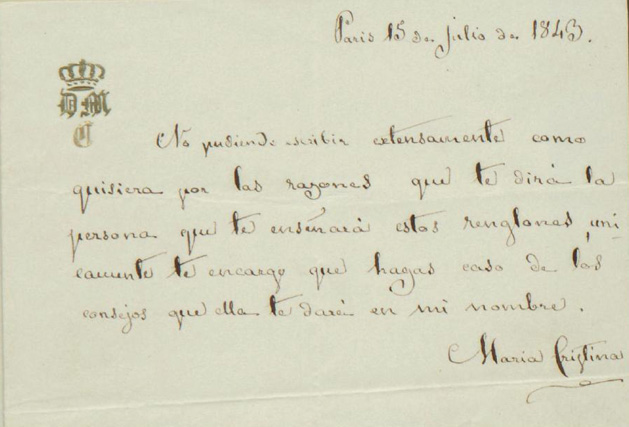 Paris 15 de julio de 1843.
D M
C
No pudiendo escribir extensamente como
quisiera por las razones que te dirá la
persona que te enseñará estos renglones, uni
camente te encargo que hagas caso de los
consejos que ella te dará en mi nombre.
Maria Cristina